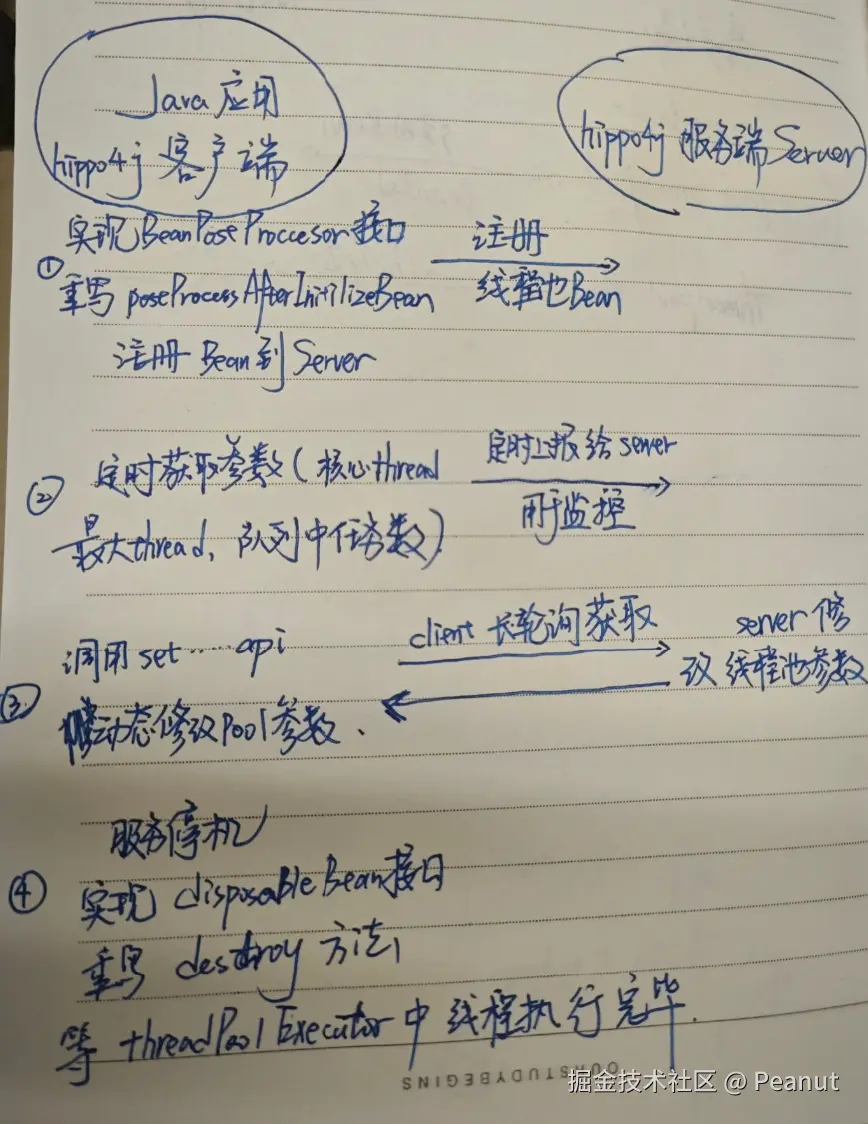 Java 应用
hippo4j 客户端
hippo4j 服务端 Server
实现 BeanPoseProccesor 接口
① 重写 poseProcessAfterInitilizeBean
注册 Bean 到 Server
注册
线程池Bean
② 定时获取参数(核心thread
最大thread, 队列中任务数)
定时上报给 server
用于监控
③ 调用 set ······ api
动态修改Pool参数.
client 长轮询获取
server 修
改 线程池参数
④ 服务停机
实现 disposableBean接口
重写 destroy 方法,
等 threadPoolExecutor 中 线程执行完毕.
OURSTUDYBEGINS
掘金技术社区 @ Peanut